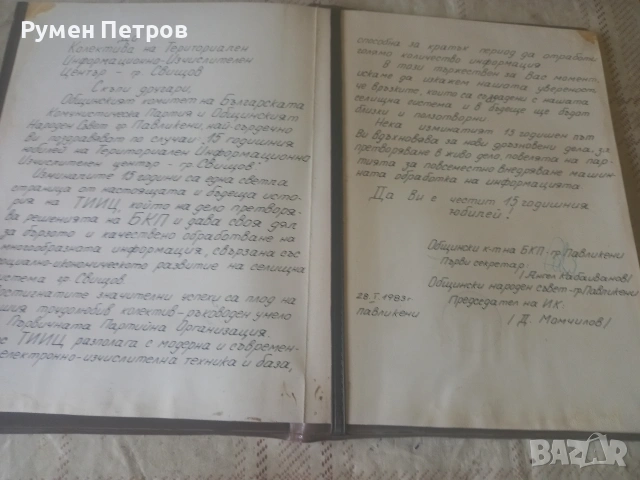 Румен Петров
Колектива на Териториален
Информационно-Изчислителен
Център - гр. Свищов
Скъпи другари,
Общинският комитет на Българската
комунистическа Партия и Общинският
Народен Съвет гр. Павликени, най-сърдечно
ви поздравяват по случай 15 годишния
юбилей на Териториален Информационно
Изчислителен център гр. Свищов.
Изминалите 15 години са една светла
страница от настоящата и бъдеща исто-
рия на ТИИЦ, който на дело претворя-
ва решенията на БКП и дава своя дял
за бързото и качествено обработване на
многообразната информация, свързана със
социално-икономическото развитие на селищна
система гр. Свищов.
Достигнатите значителни успехи са плод на
вашия трудолюбив колектив-ръководен умело
Първичната Партийна Организация.
с ТИИЦ разполага с модерна и съвремен-
електронно-изчислителна техника и база,
способна за кратък период да отработи
голямо количество информация
В този тържествен за Вас момент
искаме да изкажем нашата увереност
че връзките, които са създадени с нашата
селищна система и в бъдеще ще бъдат
близки и ползотворни
Нека изминатият 15 годишен път
Ви вдъхновява за нови дръзновени дела, за
претворяване в живо дело, повелята на пар-
тията за повсеместно внедряване машин-
ната обработка на информацията
Да Ви е честит 15 годишния
юбилей!
Общински к-т на БКП-гр. Павликени
Първи секретар:
/Ангел Кабаиванов/
Общински народен съвет-гр. Павликени
28.I.1983г
Председател на ИК:
павликени
/Д. Момчилов/
BAZAR